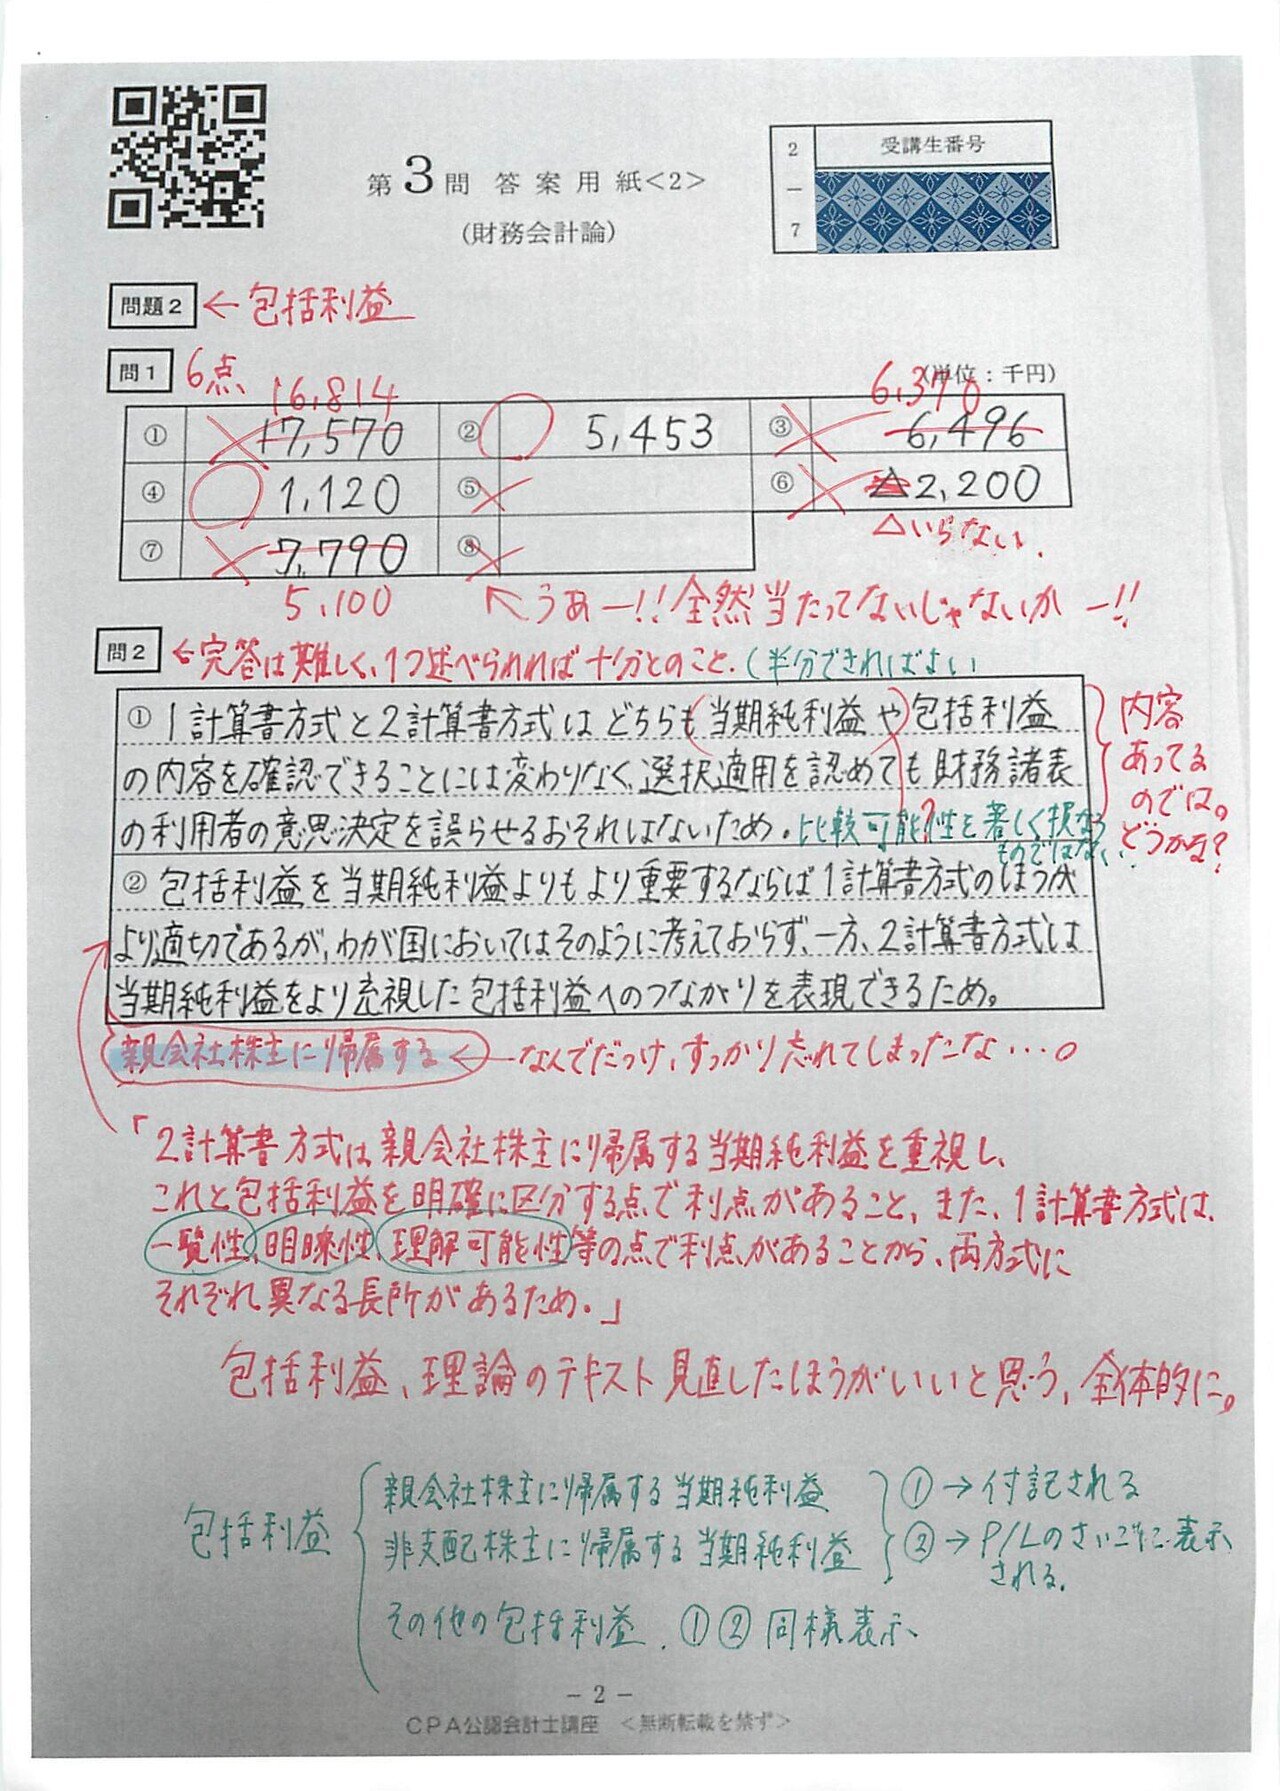 第3問 答案用紙<2>
(財務会計論)
2-7
受講生番号
問題2 ← 包括利益
問1 6点
(単位：千円)
16,814
6,370
① 17,570 ② 5,453 ③ 6,496
④ 1,120 ⑤ ⑥ △2,200
△いらない.
⑦ 7,790 ⑧
5,100
↖うあー!!全然当たってないじゃないかー!!
問2 ←完答は難しく、1つ述べられれば十分とのこと.(半分できればよい
① 1計算書方式と2計算書方式はどちらも(当期純利益や)包括利益
の内容を確認できることには変わりなく、選択適用を認めても財務諸表
の利用者の意思決定を誤らせるおそれはないため。比較可能性を著しく損なう
ものではなく..
?
内容
あってる
のでは。
どうかな?
② 包括利益を当期純利益よりもより重要するならば1計算書方式のほうが
より適切であるが、わが国においてはそのように考えておらず、一方、2計算書方式は
当期純利益をより充視した包括利益へのつながりを表現できるため。
親会社株主に帰属する ← なんでだっけ、すっかり忘れてしまったな…。
「2計算書方式は親会社株主に帰属する当期純利益を重視し、
これと包括利益を明確に区分する点で利点があること、また、1計算書方式は、
一覧性、明瞭性、理解可能性等の点で利点があることから、両方式に
それぞれ異なる長所があるため.」
包括利益、理論のテキスト見直したほうがいいと思う、全体的に。
包括利益
親会社株主に帰属する当期純利益
非支配株主に帰属する当期純利益
①→付記される
②→P/Lのさいごに表示
される.
その他の包括利益. ①②同様表示
－2－
CPA公認会計士講座 <無断転載を禁ず>